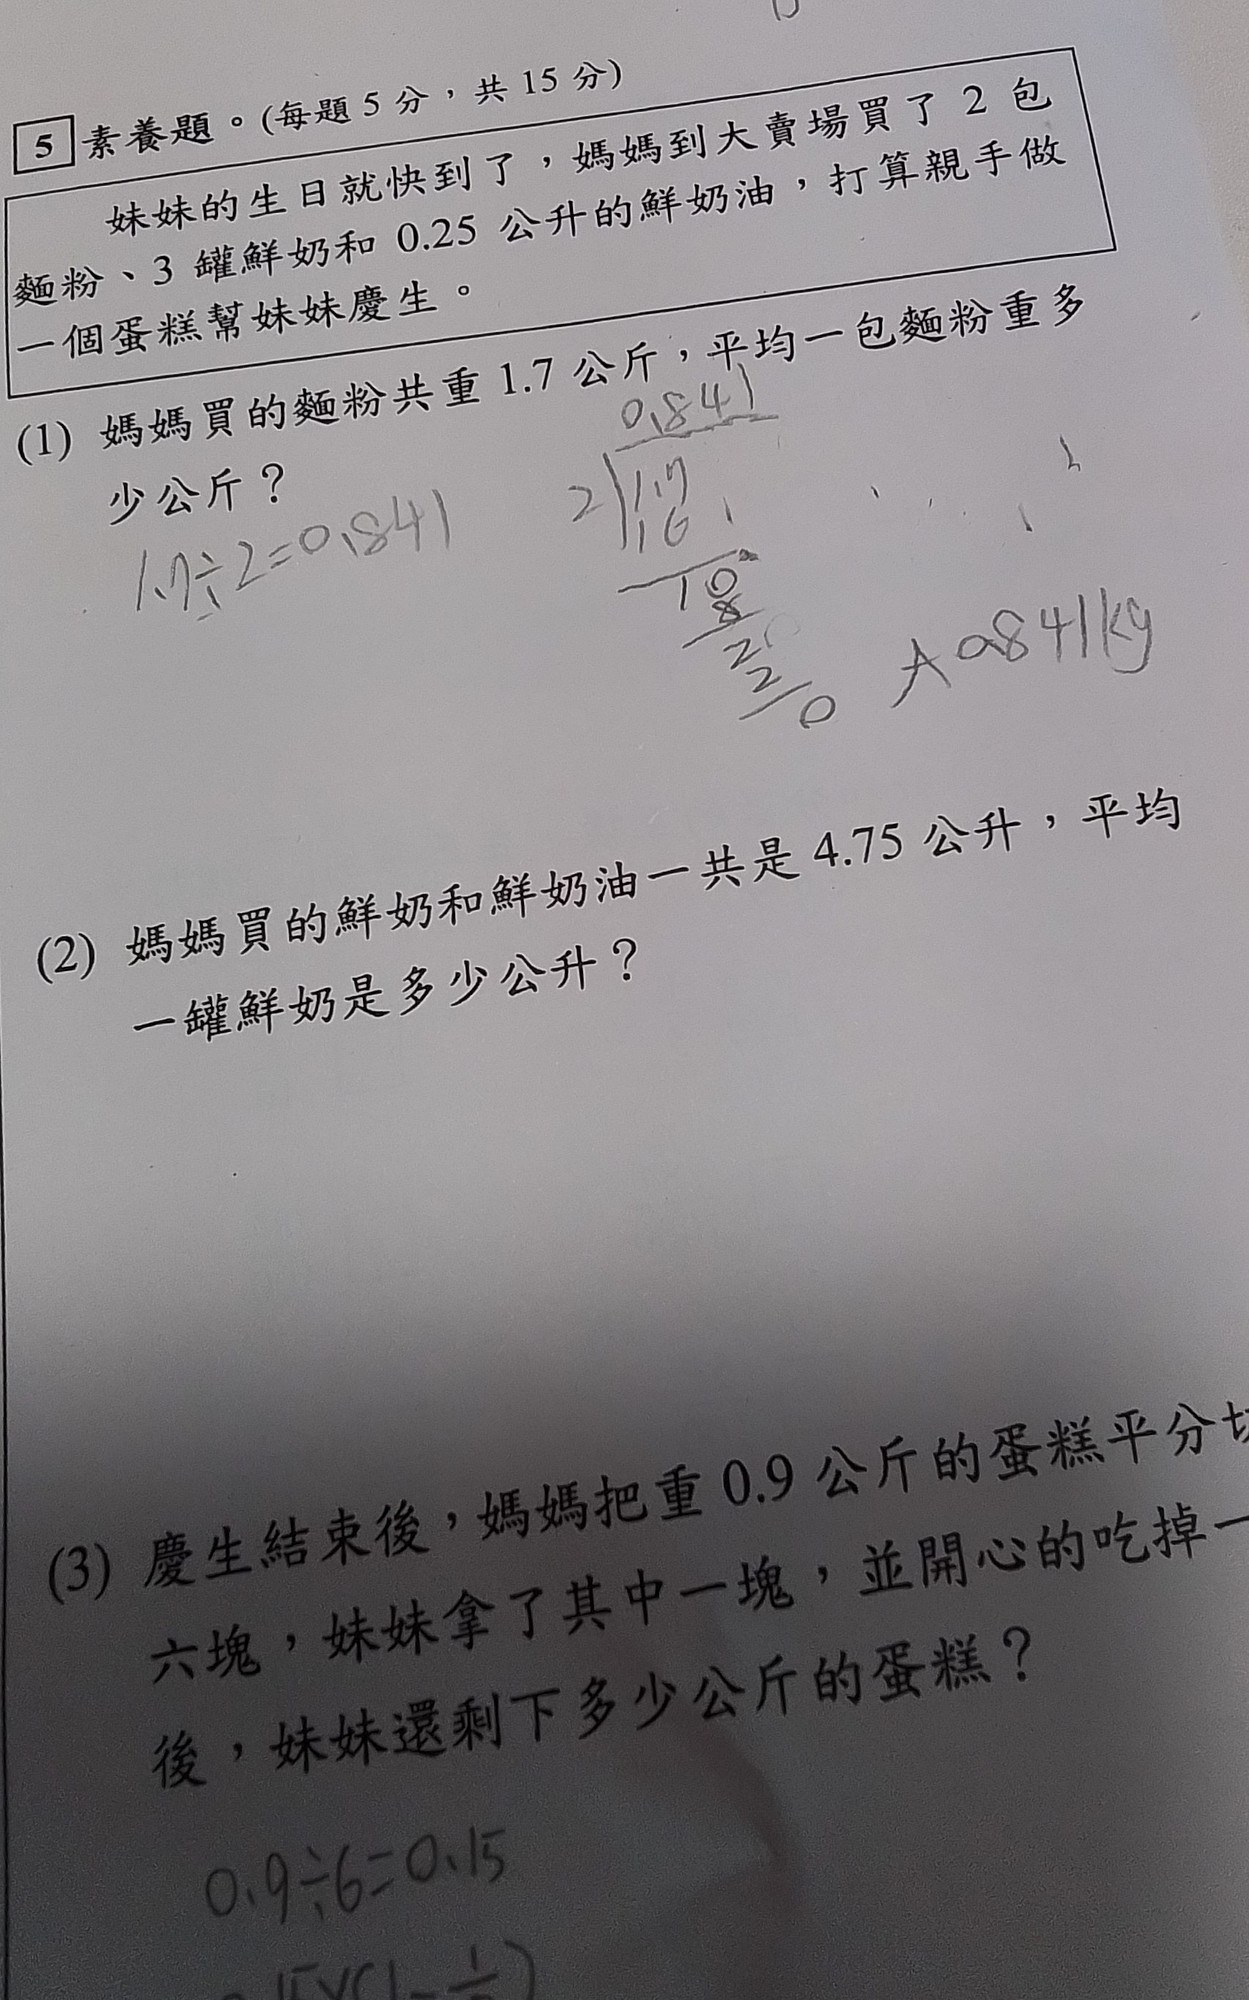 5 素養題。(每題 5 分，共 15 分)
妹妹的生日就快到了，媽媽到大賣場買了 2 包
麵粉、3 罐鮮奶和 0.25 公升的鮮奶油，打算親手做
一個蛋糕幫妹妹慶生。
(1) 媽媽買的麵粉共重 1.7 公斤，平均一包麵粉重多
少公斤？
1.7÷2=0.841
0.841
2 1.7
1.6
10
8
2
2
0
A 0.841kg
(2) 媽媽買的鮮奶和鮮奶油一共是 4.75 公升，平均
一罐鮮奶是多少公升？
(3) 慶生結束後，媽媽把重 0.9 公斤的蛋糕平分切
六塊，妹妹拿了其中一塊，並開心的吃掉一
後，妹妹還剩下多少公斤的蛋糕？
0.9÷6=0.15